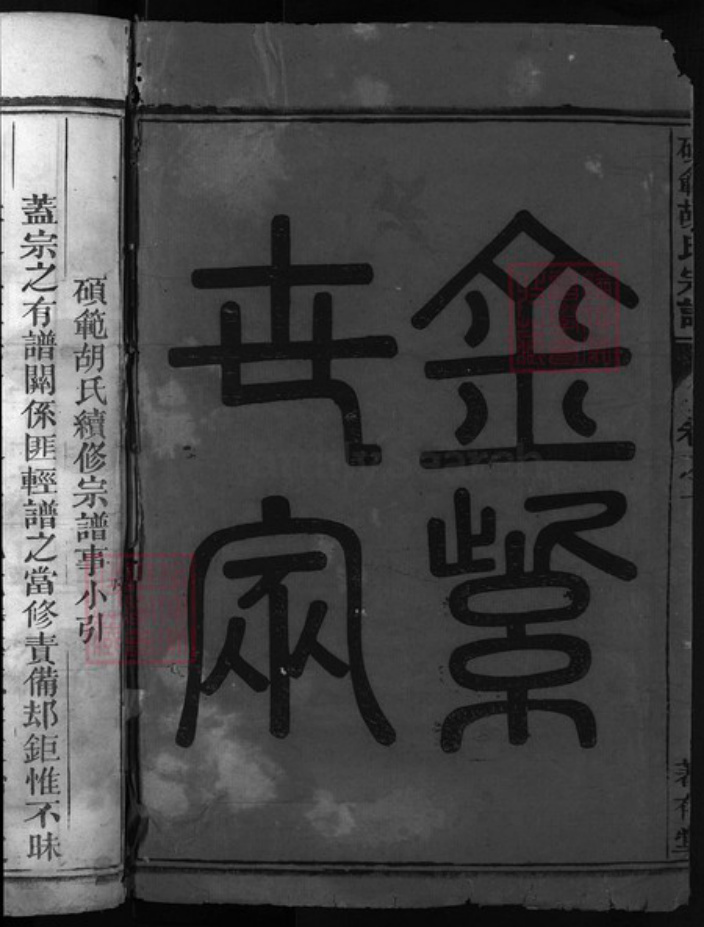 碩範胡氏宗譜
卷之一
金紫
世家
碩範胡氏續修宗譜事小引
蓋宗之有譜關係匪輕譜之當修責備却鉅惟不昧